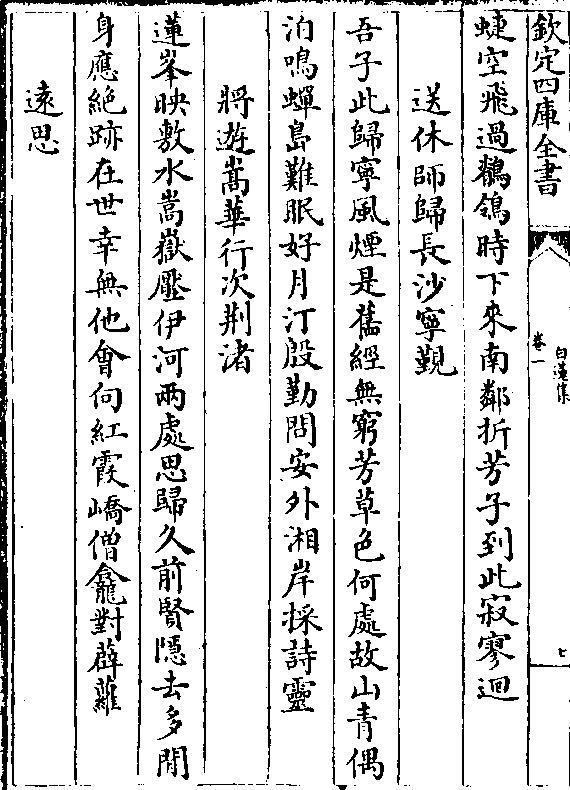 欽定四庫全書
白蓮集
卷一
七
蜨空飛過鶺鴒時下來南鄰折芳子到此寂寥迴
送休師歸長沙寧覲
吾子此歸寧風煙是舊經無窮芳草色何處故山青偶
泊鳴蟬島難眠好月汀殷勤問安外湘岸採詩靈
將遊嵩華行次荆渚
蓮峯映敷水嵩嶽壓伊河兩處思歸久前賢隱去多閒
身應絶跡在世幸無他會向紅霞嶠僧龕對薜蘿
遠思